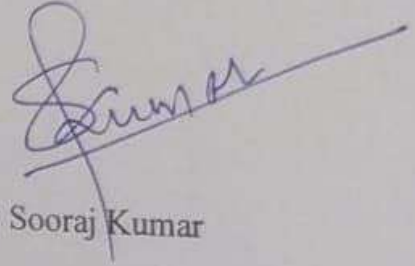 SKumar
Sooraj Kumar